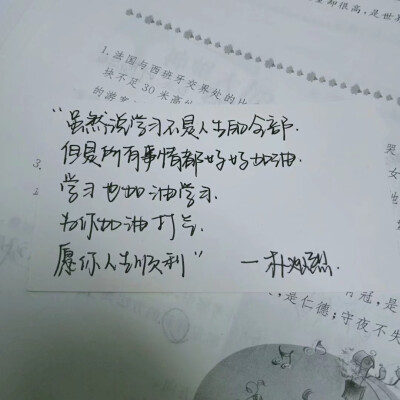 却很高，是世
1.法国与西班牙交界处的
块不足30米高
的游
"虽然说学习不是人生的全部.
但是所有事情都好好加油.
学习也加油学习.
为你加油打气.
愿你人生顺利" —朴灿烈.
3.
哭
女
也
冠，是
，是仁德；守夜不失